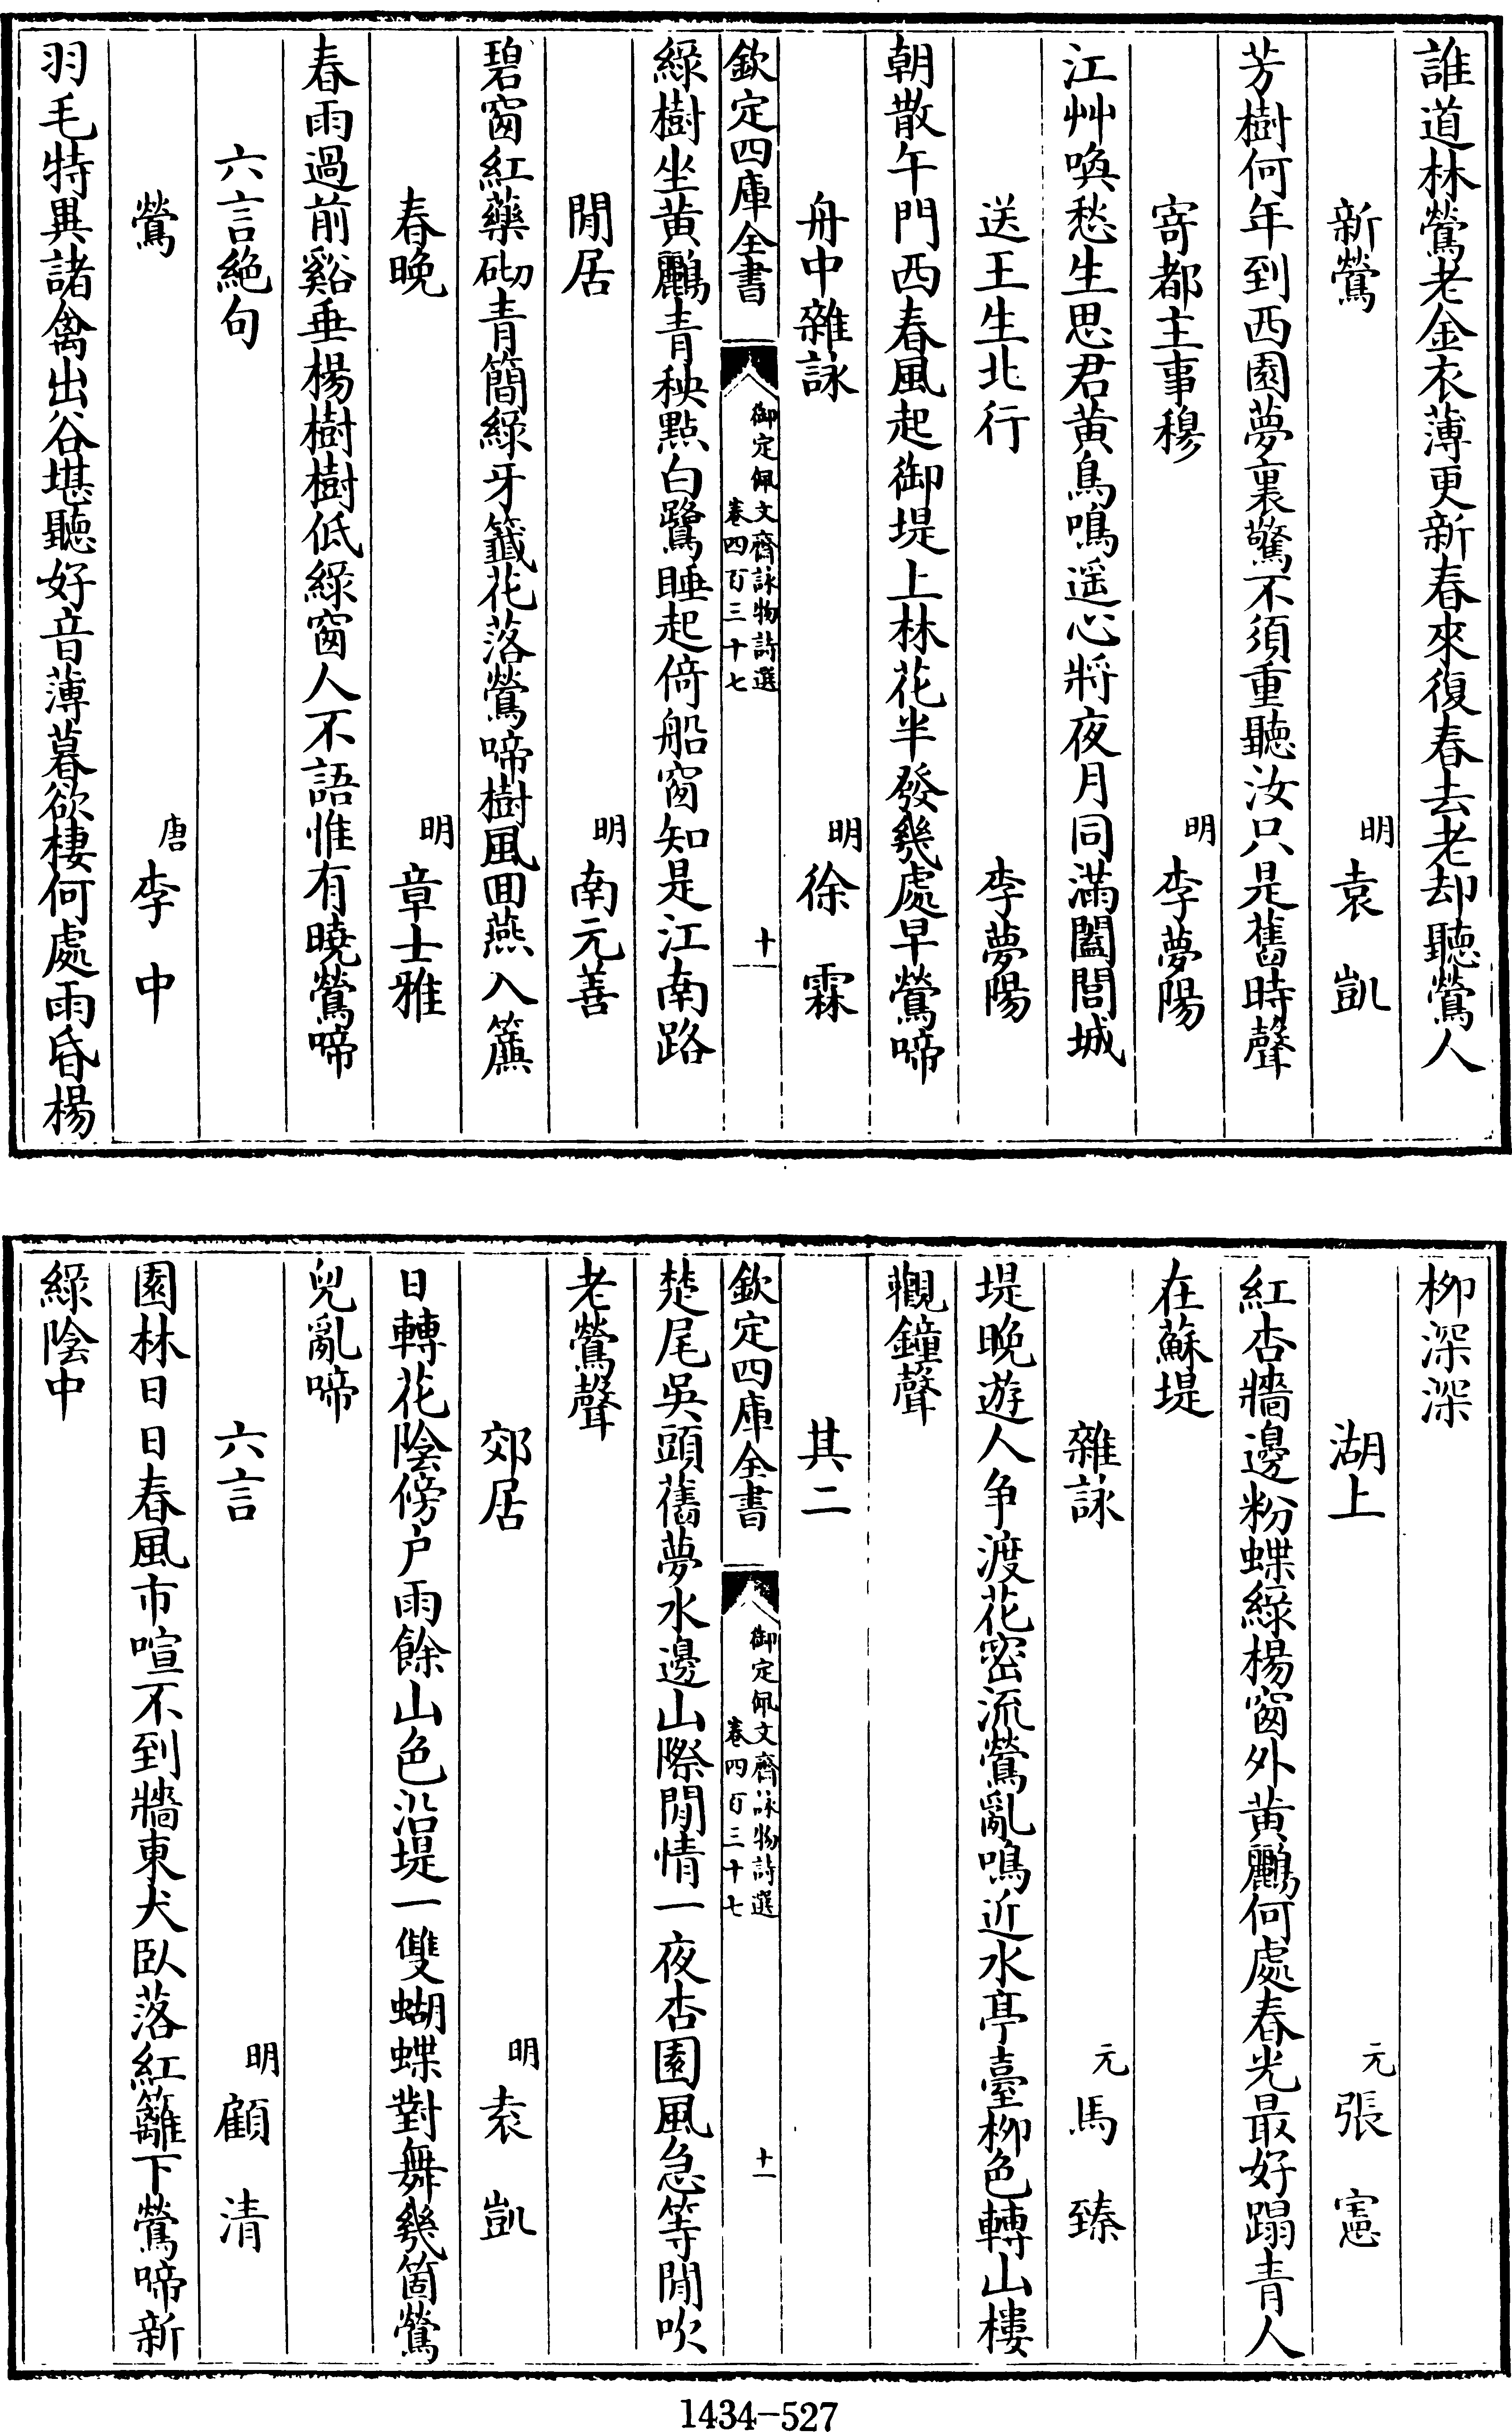 誰道林鶯老金衣薄更新春來復春去老却聽鶯人
新鶯　明袁凱
芳樹何年到西園夢裏驚不須重聽汝只是舊時聲
寄都主事穆　明李夢陽
江艸喚愁生思君黄鳥鳴遥心將夜月同滿闔閭城
送王生北行　李夢陽
朝散午門西春風起御堤上林花半發幾處早鶯啼
舟中雜詠　明徐霖
欽定四庫全書　御定佩文齋詠物詩選　卷四百三十七　十
綠樹坐黄鸝青秧點白鷺睡起倚船窗知是江南路
閒居　明南元善
碧窗紅藥砌青簡綠牙籤花落鶯啼樹風囬燕入簾
春晚　明章士雅
春雨過前谿垂楊樹樹低綠窗人不語惟有曉鶯啼
六言絕句
鶯　唐李中
羽毛特異諸禽出谷堪聽好音薄暮欲棲何處雨昏楊
柳深深
湖上　元張憲
紅杏牆邊粉蝶綠楊窗外黄鸝何處春光最好蹋青人
在蘇堤
雜詠　元馬臻
堤晚遊人争渡花密流鶯亂鳴近水亭臺柳色轉山樓
觀鐘聲
其二
欽定四庫全書　御定佩文齋詠物詩選　卷四百三十七　十一
楚尾吳頭舊夢水邊山際閒情一夜杏園風急等閒吹
老鶯聲
郊居　明袁凱
日轉花陰傍户雨餘山色沿堤一雙蝴蝶對舞幾箇鶯
兒亂啼
六言　明顧清
園林日日春風市喧不到牆東犬臥落紅籬下鶯啼新
綠陰中
1434-527